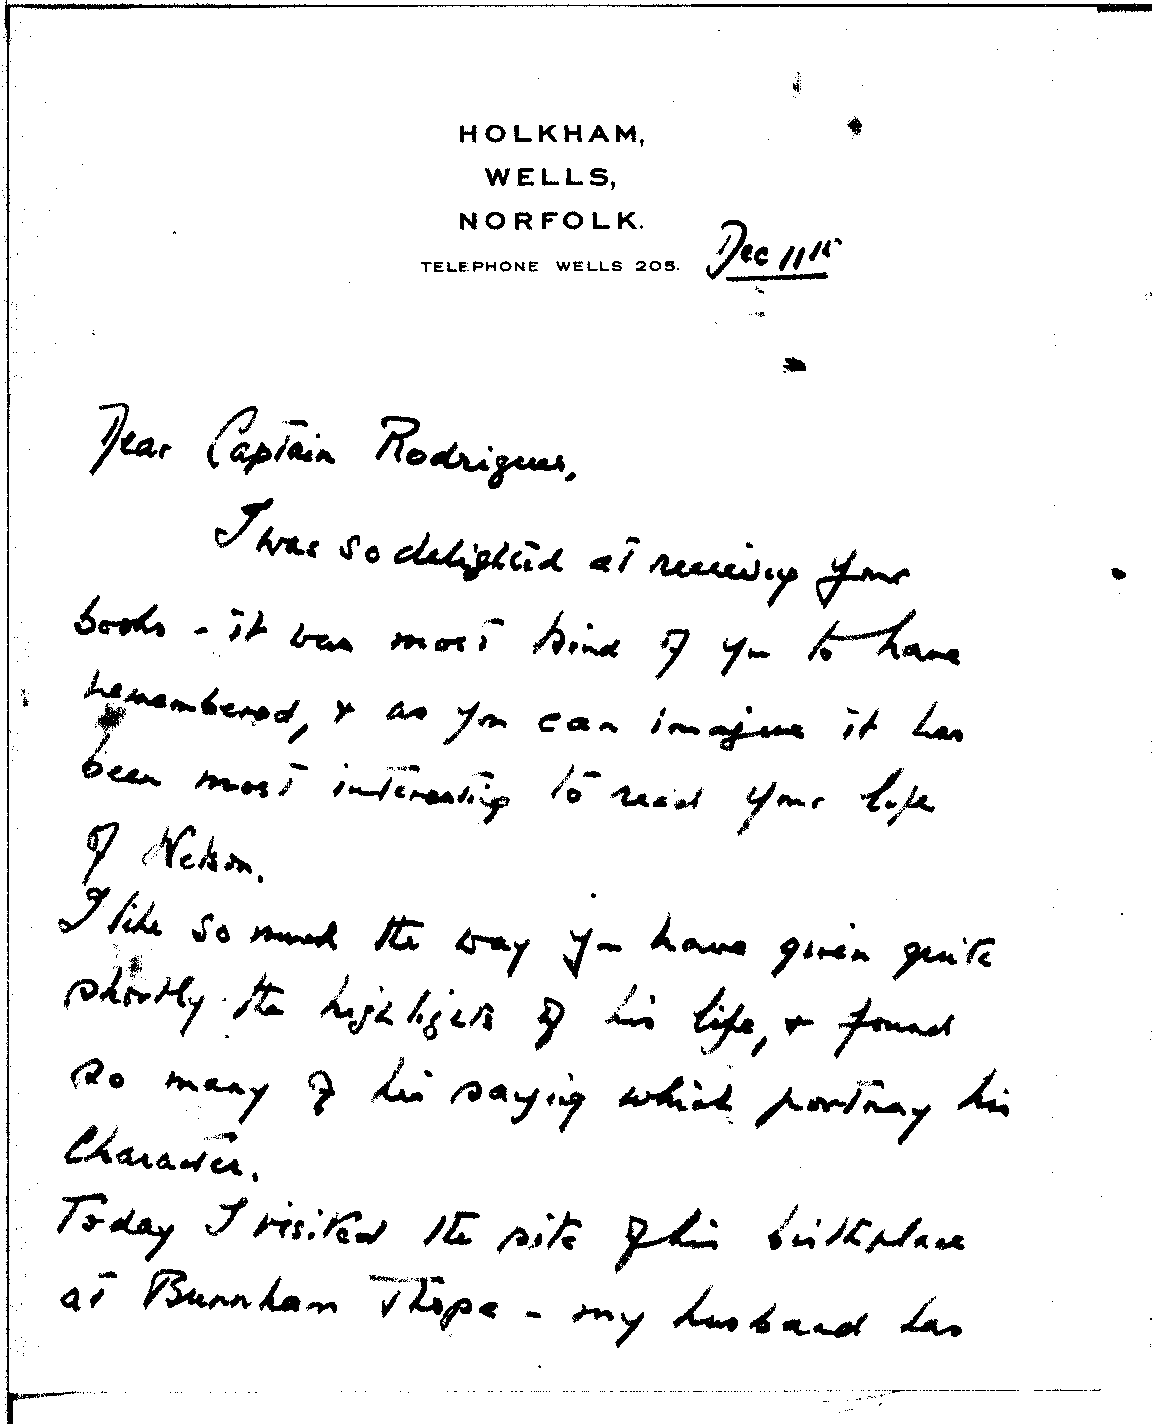 HOLKHAM,
WELLS,
NORFOLK.
TELEPHONE WELLS 205.
Dec 11th
Dear Captain Rodrigues,
I was so delighted at receiving your
books - it was most kind of you to have
remembered, & as you can imagine it has
been most interesting to read your life
of Nelson.
I like so much the way you have given quite
shortly the highlights of his life, & found
so many of his saying which portray his
Character.
Today I visited the site of his birthplace
at Burnham Thorpe - my husband has